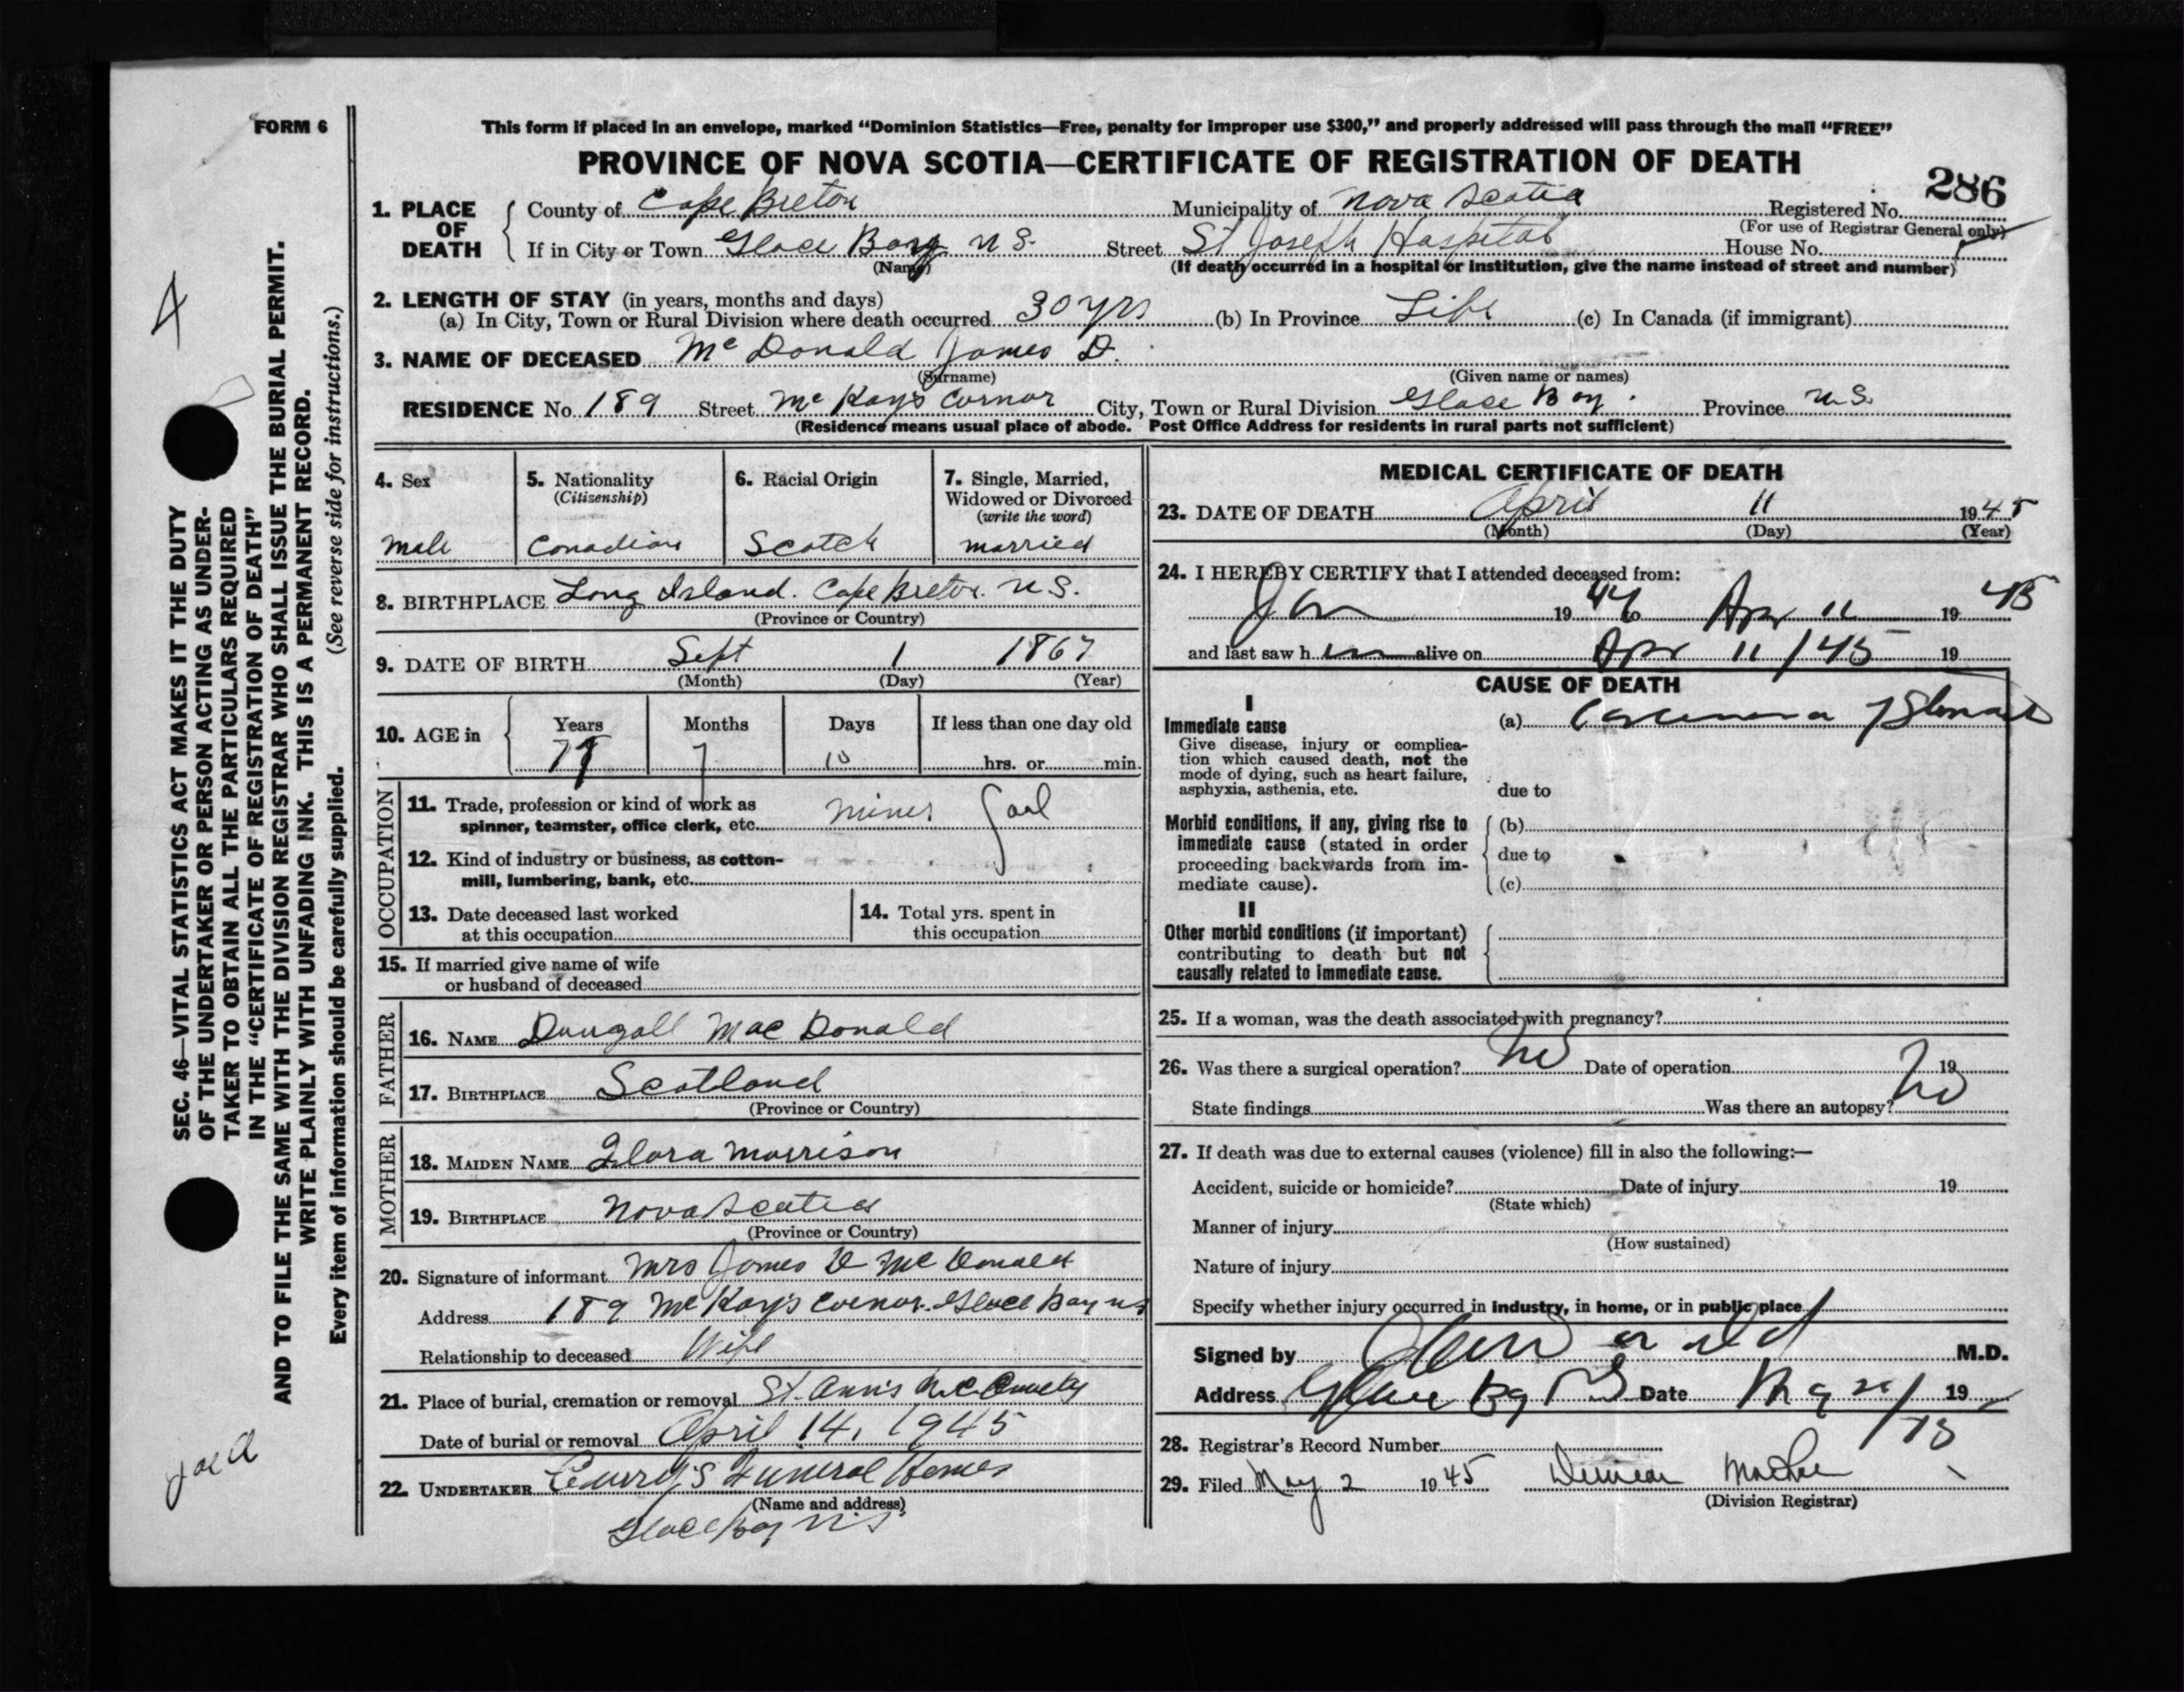 FORM 6
This form if placed in an envelope, marked “Dominion Statistics—Free, penalty for improper use $300,” and properly addressed will pass through the mail “FREE”
PROVINCE OF NOVA SCOTIA—CERTIFICATE OF REGISTRATION OF DEATH
286
1. PLACE OF DEATH
County of Cape Breton Municipality of Nova Scotia Registered No.
(For use of Registrar General only)
If in City or Town Glace Bay N S. Street St Joseph Hospital House No.
(Name) (If death occurred in a hospital or institution, give the name instead of street and number)
2. LENGTH OF STAY (in years, months and days)
(a) In City, Town or Rural Division where death occurred 30 yrs (b) In Province Life (c) In Canada (if immigrant)
3. NAME OF DECEASED McDonald James D.
(Surname) (Given name or names)
RESIDENCE No. 189 Street McKay's Cornor City, Town or Rural Division Glace Bay. Province N.S.
(Residence means usual place of abode. Post Office Address for residents in rural parts not sufficient)
4. Sex
Male
5. Nationality
(Citizenship)
Canadian
6. Racial Origin
Scotch
7. Single, Married,
Widowed or Divorced
(write the word)
married
8. BIRTHPLACE Long Island. Cape Breton. N.S.
(Province or Country)
9. DATE OF BIRTH Sept 1 1867
(Month) (Day) (Year)
10. AGE in
Years Months Days If less than one day old
7 10 hrs. or min.
OCCUPATION
11. Trade, profession or kind of work as
spinner, teamster, office clerk, etc. miner
12. Kind of industry or business, as cotton-
mill, lumbering, bank, etc.
13. Date deceased last worked
at this occupation
14. Total yrs. spent in
this occupation
15. If married give name of wife
or husband of deceased
FATHER
16. NAME Dougall MacDonald
17. BIRTHPLACE Scotland
(Province or Country)
MOTHER
18. MAIDEN NAME Flora Morrison
19. BIRTHPLACE Nova Scotia
(Province or Country)
20. Signature of informant Mrs James D McDonald
Address 189 McKay's Cornor. Glace Bay NS
Relationship to deceased Wife
21. Place of burial, cremation or removal St. Ann's
Date of burial or removal April 14, 1945
22. UNDERTAKER Curry's Funeral Homes
(Name and address)
Glace Bay N.S.
MEDICAL CERTIFICATE OF DEATH
23. DATE OF DEATH April 11 1945
(Month) (Day) (Year)
24. I HEREBY CERTIFY that I attended deceased from:
Jan 1944 to Apr 11 19 45
and last saw h im alive on Apr 11/45 19
CAUSE OF DEATH
I
Immediate cause
Give disease, injury or complica-
tion which caused death, not the
mode of dying, such as heart failure,
asphyxia, asthenia, etc.
(a) Carcinoma
due to
Morbid conditions, if any, giving rise to
immediate cause (stated in order
proceeding backwards from im-
mediate cause).
(b)
due to
(c)
II
Other morbid conditions (if important)
contributing to death but not
causally related to immediate cause.
25. If a woman, was the death associated with pregnancy?
26. Was there a surgical operation? No Date of operation 19
State findings Was there an autopsy? No
27. If death was due to external causes (violence) fill in also the following:—
Accident, suicide or homicide? Date of injury 19
(State which)
Manner of injury
(How sustained)
Nature of injury
Specify whether injury occurred in industry, in home, or in public place
Signed by M.D.
Address Glace Bay NS Date 19
28. Registrar's Record Number
29. Filed May 2 1945 Duncan
(Division Registrar)
SEC. 46—VITAL STATISTICS ACT MAKES IT THE DUTY
OF THE UNDERTAKER OR PERSON ACTING AS UNDER-
TAKER TO OBTAIN ALL THE PARTICULARS REQUIRED
IN THE “CERTIFICATE OF REGISTRATION OF DEATH”
AND TO FILE THE SAME WITH THE DIVISION REGISTRAR WHO SHALL ISSUE THE BURIAL PERMIT.
WRITE PLAINLY WITH UNFADING INK. THIS IS A PERMANENT RECORD.
(See reverse side for instructions.)
Every item of information should be carefully supplied.